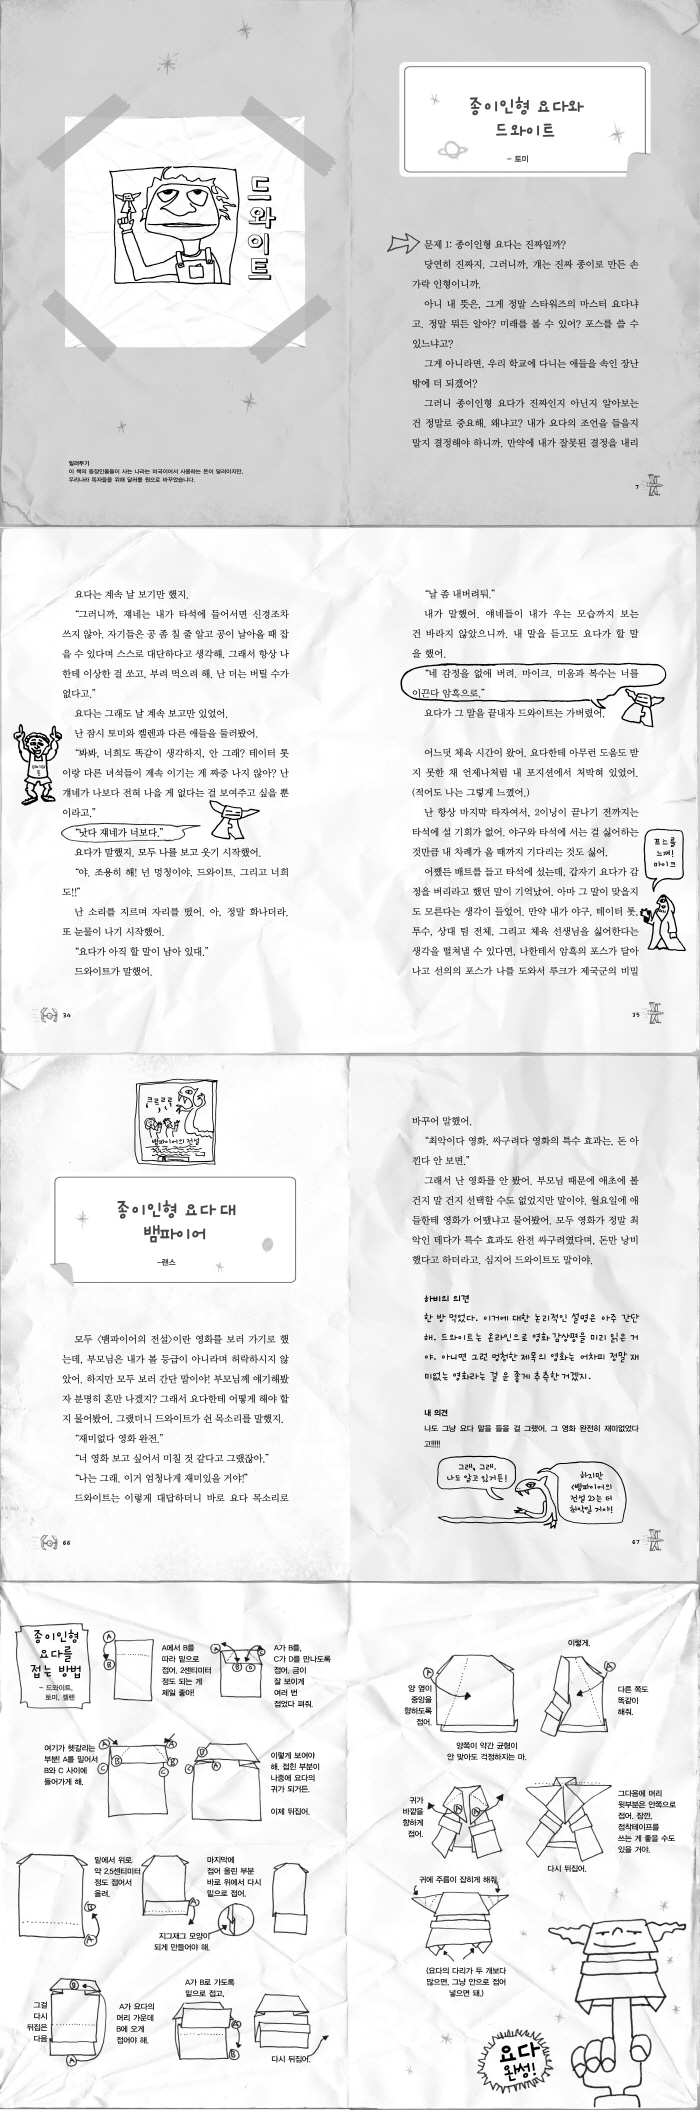 드와이트
일러두기
이 책의 등장인물들이 사는 나라는 미국이어서 사용하는 돈이 달러이지만,
우리나라 독자들을 위해 달러를 원으로 바꾸었습니다.
종이인형 요다와
드와이트
- 토미
문제 1: 종이인형 요다는 진짜일까?
당연히 진짜지. 그러니까, 걔는 진짜 종이로 만든 손
가락 인형이니까.
아니 내 뜻은, 그게 정말 스타워즈의 마스터 요다냐
고. 정말 뭐든 알아? 미래를 볼 수 있어? 포스를 쓸 수
있느냐고?
그게 아니라면, 우리 학교에 다니는 애들을 속인 장난
밖에 더 되겠어?
그러니 종이인형 요다가 진짜인지 아닌지 알아보는
건 정말로 중요해. 왜냐고? 내가 요다의 조언을 들을지
말지 결정해야 하니까. 만약에 내가 잘못된 결정을 내리
7
요다는 계속 날 보기만 했지.
“그러니까, 쟤네는 내가 타석에 들어서면 신경조차
쓰지 않아. 자기들은 공 좀 칠 줄 알고 공이 날아올 때 잡
을 수 있다며 스스로 대단하다고 생각해. 그래서 항상 나
한테 이상한 걸 쏘고, 부려 먹으려 해. 난 더는 버틸 수가
없다고.”
요다는 그래도 날 계속 보고만 있었어.
난 잠시 토미와 켈렌과 다른 애들을 둘러봤어.
“봐봐. 너희도 똑같이 생각하지, 안 그래? 테이터 톳
이랑 다른 녀석들이 계속 이기는 게 짜증 나지 않아? 난
걔네가 나보다 전혀 나을 게 없다는 걸 보여주고 싶을 뿐
이라고.”
“낫다 쟤네가 너보다.”
요다가 말했지. 모두 나를 보고 웃기 시작했어.
“야, 조용히 해! 넌 멍청이야, 드와이트. 그리고 너희
도!!”
난 소리를 지르며 자리를 떴어. 아, 정말 화나더라.
또 눈물이 나기 시작했어.
“요다가 아직 할 말이 남아 있대.”
드와이트가 말했어.
34
“날 좀 내버려둬.”
내가 말했어. 얘네들이 내가 우는 모습까지 보는
건 바라지 않았으니까. 내 말을 듣고도 요다가 할 말
을 했어.
“네 감정을 없애 버려, 마이크. 미움과 복수는 너를
이끈다 암흑으로.”
요다가 그 말을 끝내자 드와이트는 가버렸어.
어느덧 체육 시간이 왔어. 요다한테 아무런 도움도 받
지 못한 채 언제나처럼 내 포지션에서 처박혀 있었어.
(적어도 나는 그렇게 느꼈어.)
난 항상 마지막 타자여서, 2이닝이 끝나기 전까지는
타석에 설 기회가 없어. 야구와 타석에 서는 걸 싫어하는
것만큼 내 차례가 올 때까지 기다리는 것도 싫어.
어쨌든 배트를 들고 타석에 섰는데, 갑자기 요다가 감
정을 버리라고 했던 말이 기억났어. 아마 그 말이 맞을지
도 모른다는 생각이 들었어. 만약 내가 야구, 테이터 톳,
투수, 상대 팀 전체, 그리고 체육 선생님을 싫어한다는
생각을 떨쳐낼 수 있다면, 나한테서 암흑의 포스가 달아
나고 선의의 포스가 나를 도와서 루크가 제국군의 비밀
포스를
느껴!
마이크
35
크르르르
뱀파이어의 전설
종이인형 요다 대
뱀파이어
-랜스
모두 〈뱀파이어의 전설〉이란 영화를 보러 가기로 했
는데, 부모님은 내가 볼 등급이 아니라며 허락하시지 않
았어. 하지만 모두 보러 간단 말이야! 부모님께 얘기해봤
자 분명히 혼만 나겠지? 그래서 요다한테 어떻게 해야 할
지 물어봤어. 그랬더니 드와이트가 쉰 목소리를 말했지.
“재미없다 영화 완전.”
“너 영화 보고 싶어서 미칠 것 같다고 그랬잖아.”
“나는 그래. 이거 엄청나게 재미있을 거야!”
드와이트는 이렇게 대답하더니 바로 요다 목소리로
66
바꾸어 말했어.
“최악이다 영화. 싸구려다 영화의 특수 효과는. 돈 아
낀다 안 보면.”
그래서 난 영화를 안 봤어. 부모님 때문에 애초에 볼
건지 말 건지 선택할 수도 없었지만 말이야. 월요일에 애
들한테 영화가 어땠냐고 물어봤어. 모두 영화가 정말 최
악인 데다가 특수 효과도 완전 싸구려였다며, 돈만 낭비
했다고 하더라고. 심지어 드와이트도 말이야.
하비의 의견
한 방 먹었다. 이거에 대한 논리적인 설명은 아주 간단
해. 드와이트는 온라인으로 영화 감상평을 미리 읽은 거
야. 아니면 그런 멍청한 제목의 영화는 어차피 정말 재
미없는 영화라는 걸 운 좋게 추측한 거겠지.
내 의견
나도 그냥 요다 말을 들을 걸 그랬어. 그 영화 완전히 재미없었다
고!!!!!
그래, 그래.
나도 알고 있거든!
하지만
〈뱀파이어의
전설 2〉는 더
최악일 거야!
67
종이인형
요다를
접는 방법
- 드와이트,
토미, 켈렌
A에서 B를
따라 밑으로
접어. 2센티미터
정도 되는 게
제일 좋아!
A가 B를,
C가 D를 만나도록
접어. 금이
잘 보이게
여러 번
접었다 펴줘.
여기가 헷갈리는
부분! A를 밀어서
B와 C 사이에
들어가게 해.
이렇게 보여야
해. 접힌 부분이
나중에 요다의
귀가 되거든.
이제 뒤집어.
밑에서 위로,
약 2.5센티미터
정도 접어서
올려.
마지막에
접어 올린 부분
바로 위에서 다시
밑으로 접어.
지그재그 모양이
되게 만들어야 해.
그걸
다시
뒤집은
다음
A가 요다의
머리 가운데
B에 오게
접어야 해.
A가 B로 가도록
밑으로 접고,
다시 뒤집어.
이렇게.
양 옆이
중앙을
향하도록
접어.
다른 쪽도
똑같이
해줘.
양쪽이 약간 균형이
안 맞아도 걱정하지는 마.
귀가
바깥을
향하게
접어.
그다음에 머리
윗부분은 안쪽으로
접어. 잠깐,
접착테이프를
쓰는 게 좋을 수도
있을 거야.
다시 뒤집어.
귀에 주름이 잡히게 해줘.
(요다의 다리가 두 개보다
많으면, 그냥 안으로 접어
넣으면 돼.)
요다
완성!